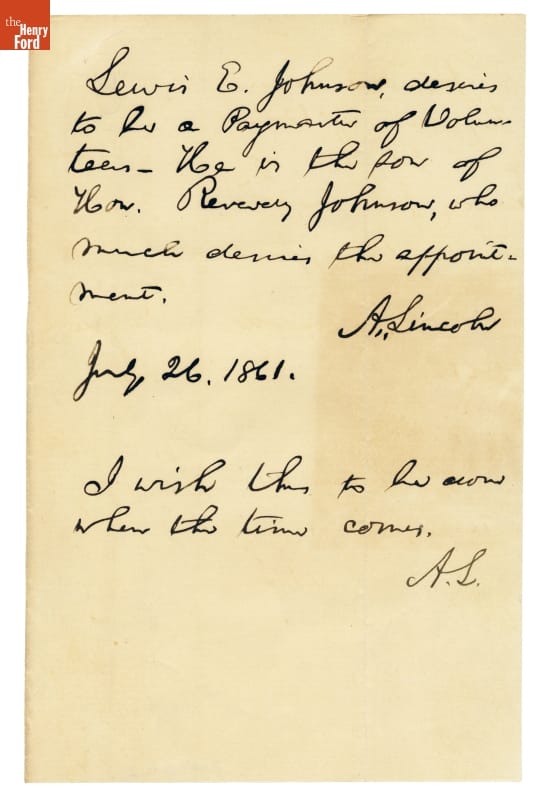 the
Henry
Ford
Lewis E. Johnson, desires
to be a Paymaster of Volun-
teers— He is the son of
Hon. Reverdy Johnson, who
much desires the appoint-
ment.
A. Lincoln
July 26. 1861.
I wish this to be done
when the time comes.
A. L.